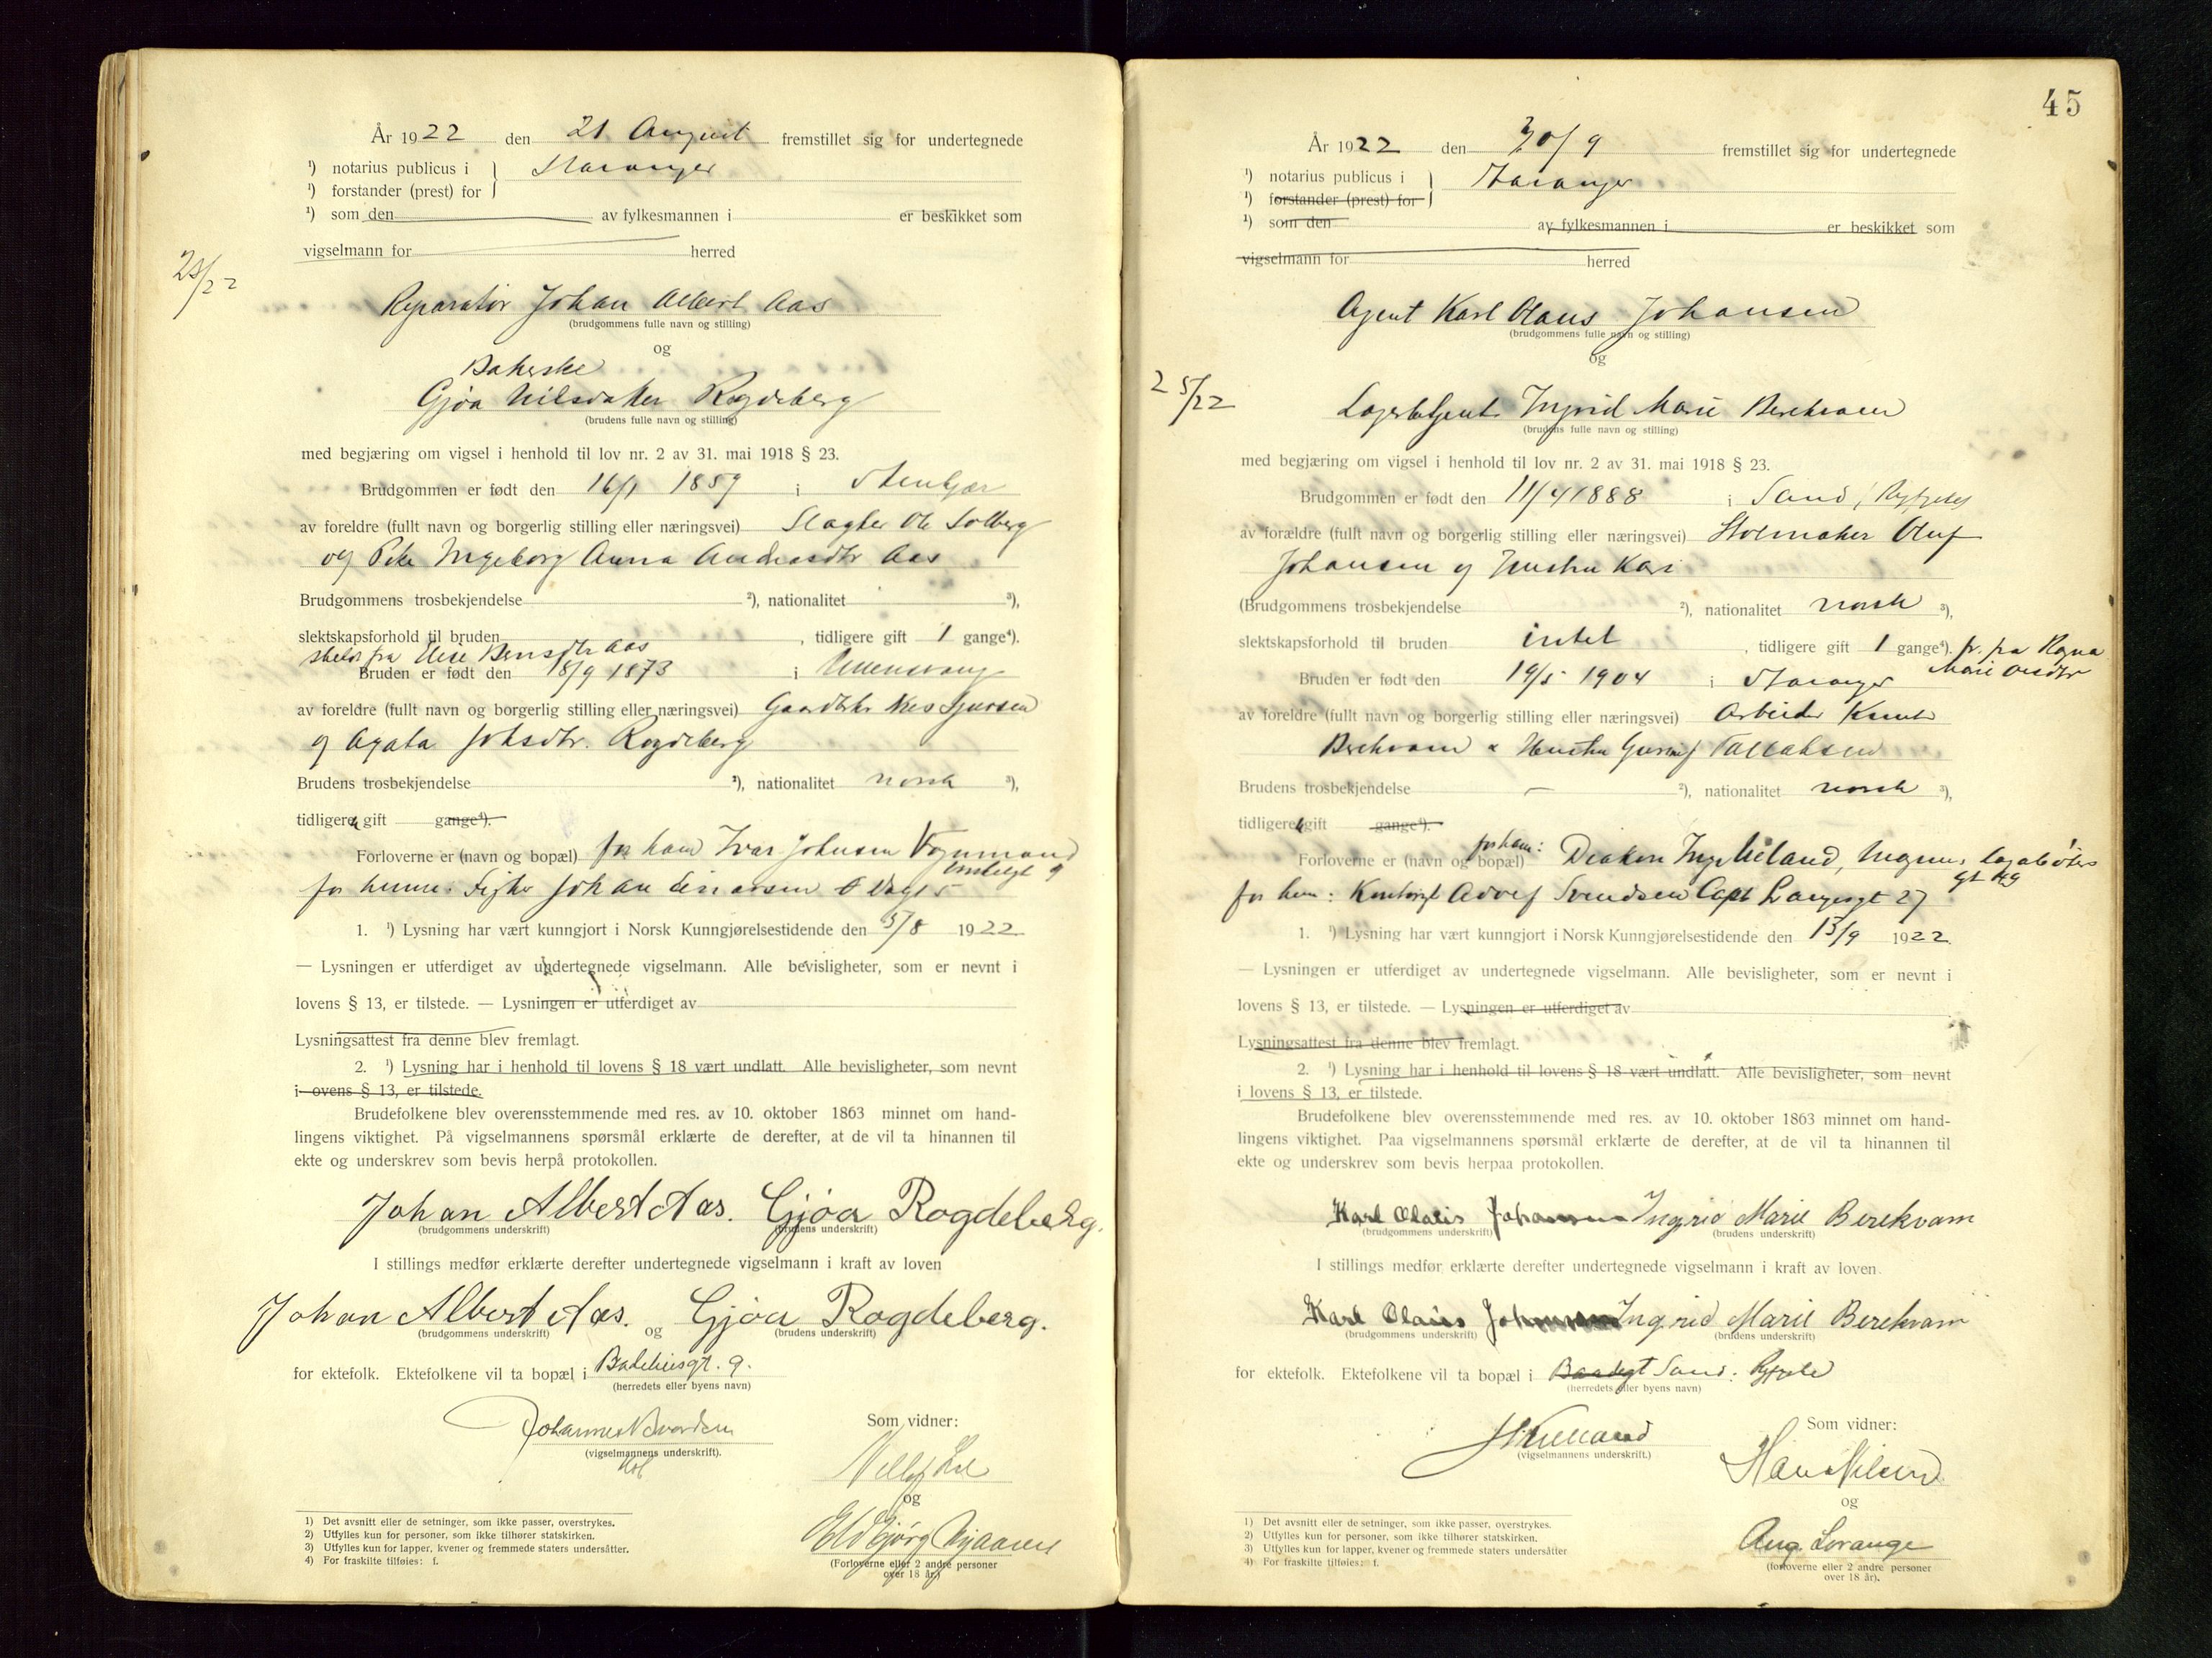 År 1922 den 21 August fremstillet sig for undertegnede
¹) notarius publicus i } Stavanger
¹) forstander (prest) for
¹) som den av fylkesmannen i er beskikket som
vigselmann for herred
23/22
Reparatør Johan Albert Aas
(brudgommens fulle navn og stilling)
og
Bakerske
Gjøa Nilsdatter Rogdeberg
(brudens fulle navn og stilling)
med begjæring om vigsel i henhold til lov nr. 2 av 31. mai 1918 § 23.
Brudgommen er født den 16/1 1859 i Stenkjær
av foreldre (fullt navn og borgerlig stilling eller næringsvei) Slagter Ole Solberg
og Pike Ingeborg Anna Andreasdtr Aas
Brudgommens trosbekjendelse ²), nationalitet ³),
slektskapsforhold til bruden , tidligere gift 1 gange⁴).
skilt fra Elise Berntsdtr Aas
Bruden er født den 18/9 1873 i Ullensvang
av foreldre (fullt navn og borgerlig stilling eller næringsvei) Gaardbr. Nils Sjursen
og Agata Johsdtr. Rogdeberg
Brudens trosbekjendelse ²), nationalitet norsk ³),
tidligere gift gange⁴).
Forloverne er (navn og bopæl) for ham Ivar Johnsen Vognmand
for henne: Johan
1. ¹) Lysning har vært kunngjort i Norsk Kunngjørelsestidende den 5/8 1922
— Lysningen er utferdiget av undertegnede vigselmann. Alle bevisligheter, som er nevnt i
lovens § 13, er tilstede. — Lysningen er utferdiget av
Lysningsattest fra denne blev fremlagt.
2. ¹) Lysning har i henhold til lovens § 18 vært undlatt. Alle bevisligheter, som nevnt
i ovens § 13, er tilstede.
Brudefolkene blev overensstemmende med res. av 10. oktober 1863 minnet om hand-
lingens viktighet. På vigselmannens spørsmål erklærte de derefter, at de vil ta hinannen til
ekte og underskrev som bevis herpå protokollen.
Johan Albert Aas. Gjøa Rogdeberg.
(brudgommens underskrift) (brudens underskrift)
I stillings medfør erklærte derefter undertegnede vigselmann i kraft av loven
Johan Albert Aas. og Gjøa Rogdeberg.
(brudgommens underskrift) (brudens underskrift)
for ektefolk. Ektefolkene vil ta bopæl i Badehusgt. 9.
(herredets eller byens navn)
Johannes
(vigselmannens underskrift).
Som vidner:
og
Eldbjørg
(Forloverne eller 2 andre personer
over 18 år.)
1) Det avsnitt eller de setninger, som ikke passer, overstrykes.
2) Utfylles kun for personer, som ikke tilhører statskirken.
3) Utfylles kun for lapper, kvener og fremmede staters undersåtter.
4) For fraskilte tilføies: f.
45
År 1922 den 30/9 fremstillet sig for undertegnede
¹) notarius publicus i } Stavanger
¹) forstander (prest) for
¹) som den av fylkesmannen i er beskikket som
vigselmann for herred
Agent Karl Olaus Johansen
(brudgommens fulle navn og stilling)
og
25/22
Lagerbetjent Ingrid Marie Berekvam
(brudens fulle navn og stilling)
med begjæring om vigsel i henhold til lov nr. 2 av 31. mai 1918 § 23.
Brudgommen er født den 11/4 1888 i Sand, Ryfylke
av forældre (fullt navn og borgerlig stilling eller næringsvei) Stolmaker Oluf
Johansen og Hustru Kari
(Brudgommens trosbekjendelse ²), nationalitet norsk ³),
slektskapsforhold til bruden intet , tidligere gift 1 gange⁴). fr. fra Ragna
Marie Olsdtr
Bruden er født den 19/5 1904 i Stavanger
av foreldre (fullt navn og borgerlig stilling eller næringsvei) Arbeider Knut
Berekvam & Hustru Tallaksen
Brudens trosbekjendelse — ²), nationalitet norsk ³),
tidligere gift gange⁴).
Forloverne er (navn og bopæl) for ham: Diakon Inge Meland, Magnus Lagabøters
gt 49
for hen: Kontorist Adolf Svendsen Capt Langesgt 27
1. ¹) Lysning har vært kunngjort i Norsk Kunngjørelsestidende den 13/9 1922
— Lysningen er utferdiget av undertegnede vigselmann. Alle bevisligheter, som er nevnt i
lovens § 13, er tilstede. — Lysningen er utferdiget av
Lysningsattest fra denne blev fremlagt.
2. ¹) Lysning har i henhold til lovens § 18 vært undlatt. Alle bevisligheter, som nevnt
i lovens § 13, er tilstede.
Brudefolkene blev overensstemmende med res. av 10. oktober 1863 minnet om hand-
lingens viktighet. Paa vigselmannens spørsmål erklærte de derefter, at de vil ta hinannen til
ekte og underskrev som bevis herpaa protokollen.
Karl Olaus Johansen Ingrid Marie Berekvam
(brudgommens underskrift) (brudens underskrift)
I stillings medfør erklærte derefter undertegnede vigselmann i kraft av loven
Karl Olaus Johansen Ingrid Marie Berekvam
(brudgommens underskrift) (brudens underskrift)
for ektefolk. Ektefolkene vil ta bopæl i Sand: Ryfylke
(herredets eller byens navn)
(vigselmannens underskrift.)
Som vidner:
Hans Nilsen
og
Aug. Lorange
(forloverne eller 2 andre personer
over 18 år).
1) Det avsnitt eller de setninger, som ikke passer, overstrykes.
2) Utfylles kun for personer, som ikke tilhører statskirken.
3) Utfylles kun for lapper, kvener og fremmede staters undersåtter
4) For fraskilte tilføies: f.